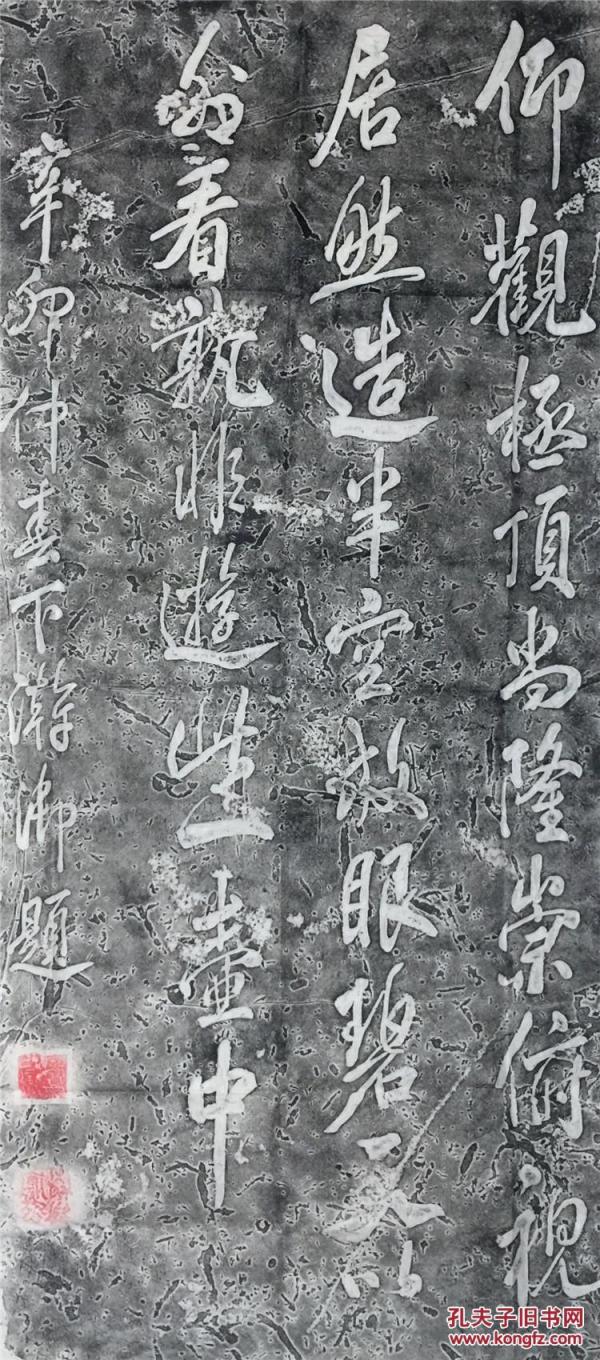 仰觀極頂尚隆崇俯視
居然造半空放眼碧以
翁看孰非遊此一壺中
辛卯仲春下澣御題
孔夫子旧书网
www.kongfz.com